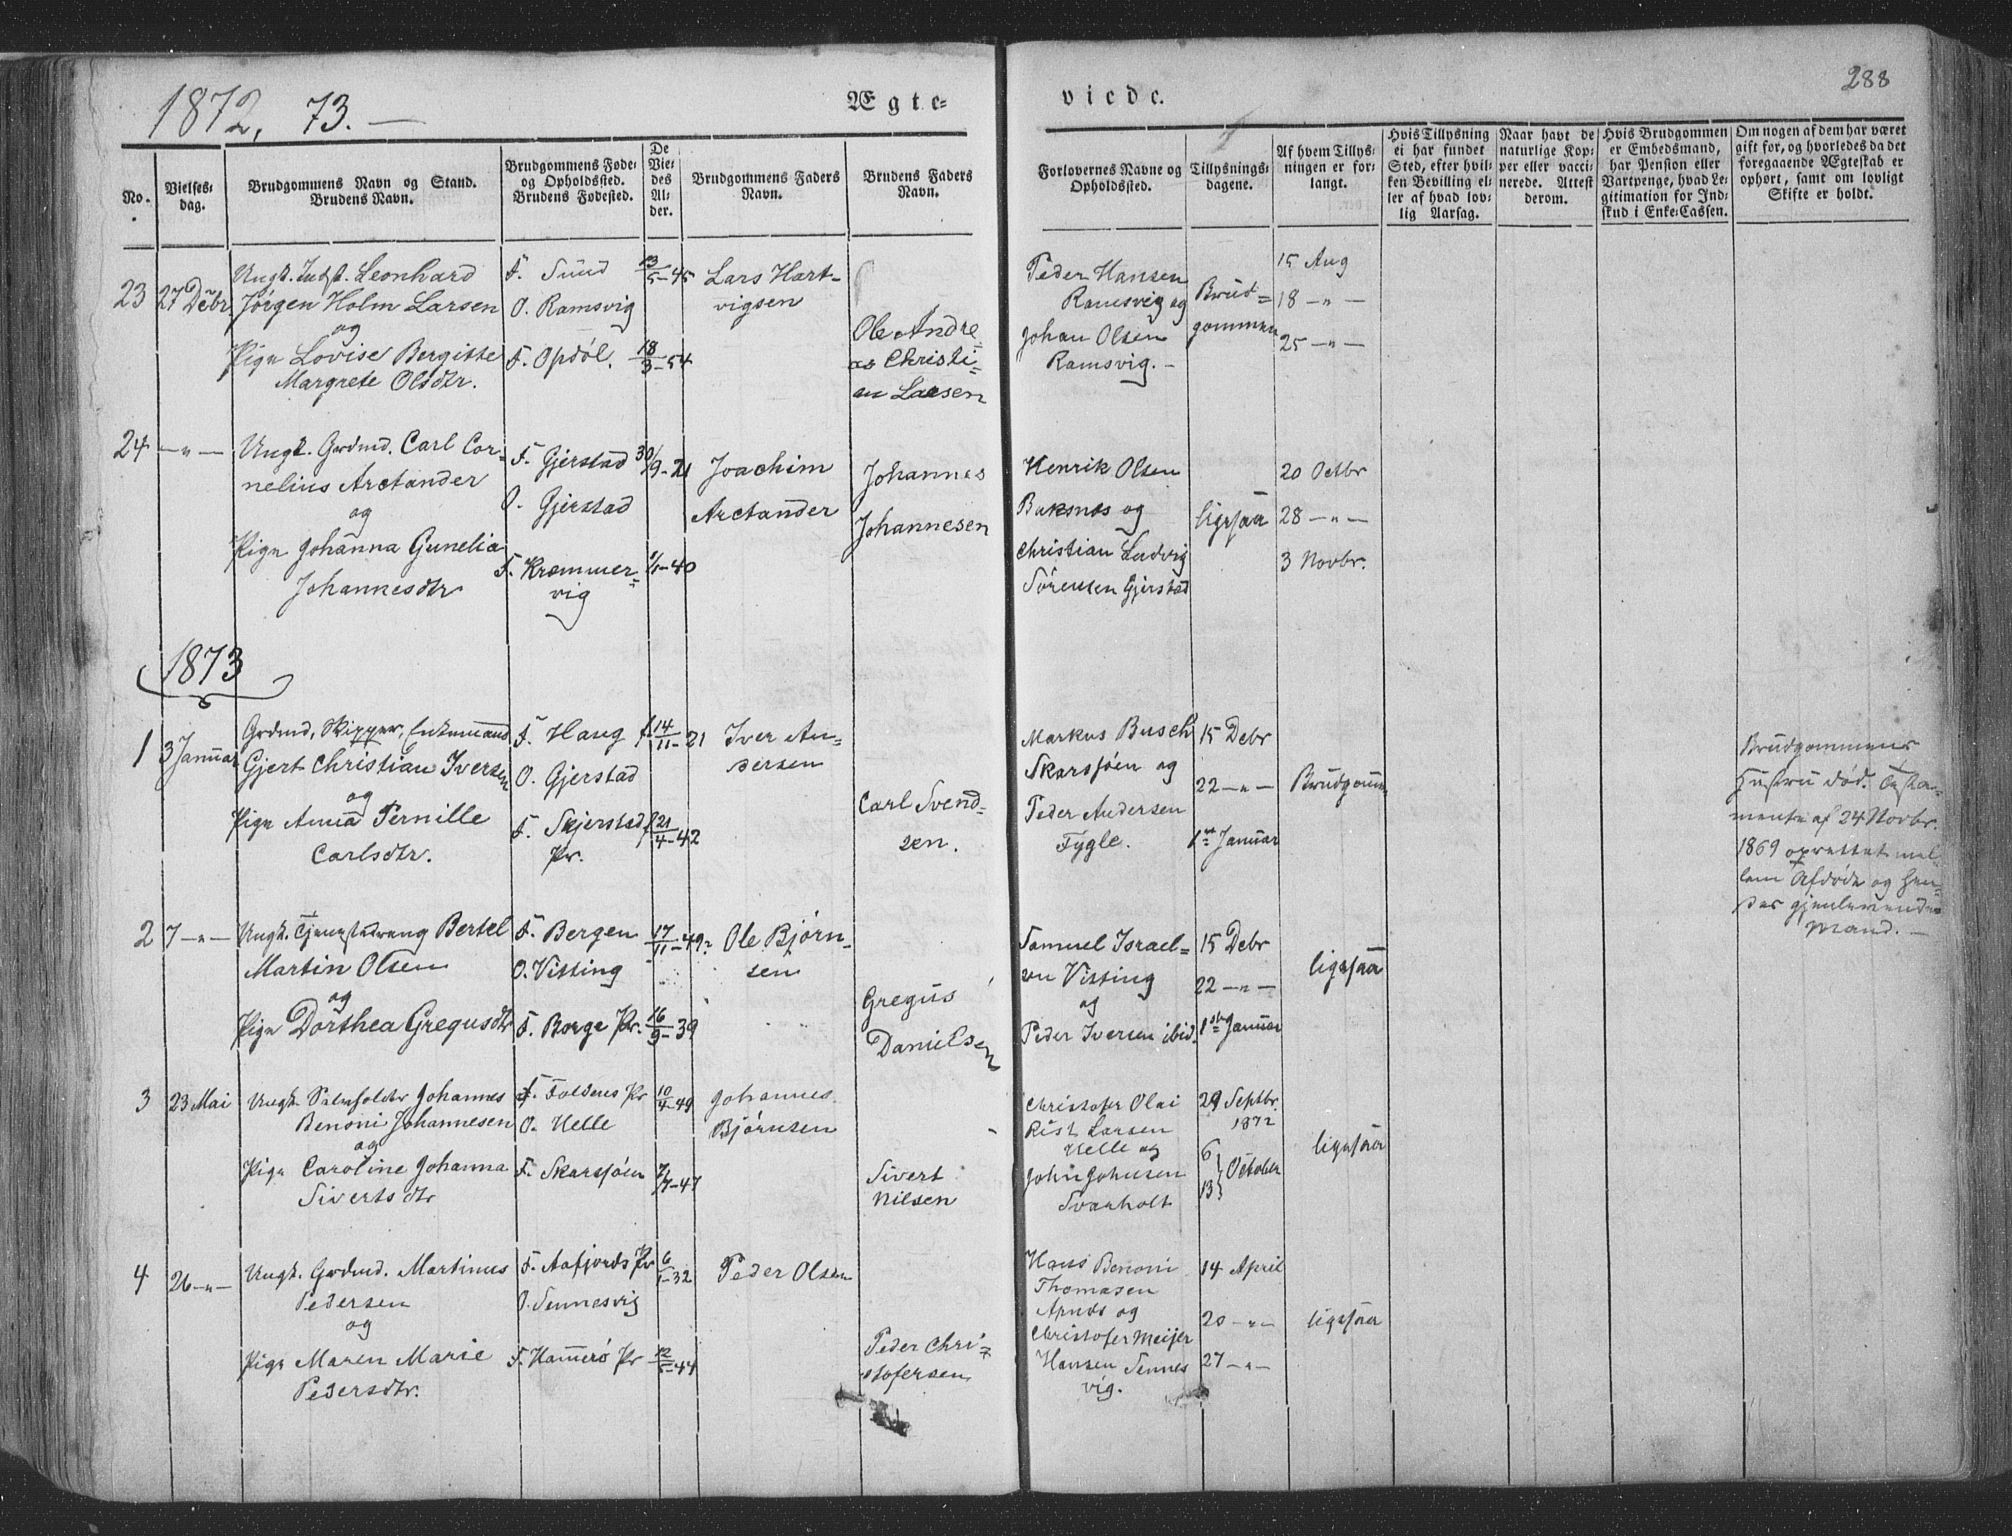 1872, 73. —
Ægte-
viede.
288
No.
Vielses-
dag.
Brudgommens Navn og Stand.
Brudens Navn.
Brudgommens Føde-
og Opholdssted.
Brudens Fødested.
De
Vie-
des
Al-
der.
Brudgommens Faders
Navn.
Brudens Faders
Navn.
Forlovernes Navne og
Opholdssted.
Tillysnings-
dagene.
Af hvem Tillys-
ningen er for-
langt.
Hvis Tillysning
ei har fundet
Sted, efter hvil-
ken Bevilling el-
ler af hvad lov-
lig Aarsag.
Naar havt de
naturlige Kop-
per eller vacci-
nerede. Attest
derom.
Hvis Brudgommen
er Embedsmand,
har Pension eller
Vartpenge, hvad Le-
gitimation for Ind-
skud i Enke-Cassen.
Om nogen af dem har været
gift for, og hvorledes da det
foregaaende Ægteskab er
ophørt, samt om lovligt
Skifte er holdt.
23
27 Debr
Ungk. Indst. Leonhard
Jørgen Holm Larsen
og
Pige Lovise Bergitte
Margrete Olsdtr.
F. Sund
O. Ramsvig
F. Opdøl.
13/5-45
18/3-54
Lars Hart-
vigsen
Ole Andre-
as Christi-
an Larsen
Peder Hansen
Ramsvig og
Johan Olsen
Ramsvig. -
Brud-
gommen
15 Aug
18 -"-
25 -"-
24
-"-
Ungk. Grdmd. Carl Cor-
nelius Arctander
og
Pige Johanna Gunelia
Johannesdtr
F. Gjerstad
O. Gjerstad
F. Kræmmer-
vig
30/9-21
1/1-40
Joachim
Arctander
Johannes
Johannesen
Henrik Olsen
Buksnæs og
Christian Ludvig
Sørensen Gjerstad
ligesaa
20 Octbr
28 -"-
3 Novbr.
1873
1
3 Januar
Grdmd, Skipper, Enkemand
Gjert Christian Iversen
og
Pige Anna Pernille
Carlsdtr.
F. Haug
O. Gjerstad
F. Skjerstad
Pr.
14/11-21
21/4-42
Iver An-
dersen
Carl Svend-
sen.
Markus Busch
Skarsjøen og
Peder Andersen
Fygle.
15 Debr
22 -"-
1ste Januar
Brudgomm
Brudgommens
Hustru død. Testa-
mente af 24 Novbr.
1869 oprettet mel-
lem Afdøde og hen-
des gjenlevende
Mand. -
2
7 -"-
Ungk. Tjenestedreng Bertel
Martin Olsen
og
Pige Dorthea Gregusdtr
F. Bergen
O. Vitting
F. Borge Pr.
17/11-49
16/9-39
Ole Bjørn-
sen
Gregus
Danielsen
Samuel Israel-
sen Vitting
og
Peder Iversen ibid.
15 Debr
22 -"-
1ste Januar
ligesaa
3
23 Mai
Ungk. Johannes
Benoni Johannesen
og
Pige Caroline Johanna
Sivertsdtr
F. Foldens Pr
O. Helle
F. Skarsjøen
10/4-49
7/7-47
Johannes
Bjørnsen
Sivert
Nilsen
Christofer Olai
Rist Larsen
Helle og
John Johnsen
Svarholt
29 Septbr.
1872
6
13 October
ligesaa
4
26 -"-
Ungk. Grdmd. Martinus
Pedersen
og
Pige Maren Marie
Pedersdtr.
F. Aafjords Pr
O. Sennesvig
F. Hamerø Pr
6/1-32
12/5-44
Peder Olsen
Peder Chri-
stofersen
Hans Benoni
Thomasen
og
Christofer Meijer
Hansen Sennes
vig.
14 April
20 -"-
27 -"-
ligesaa